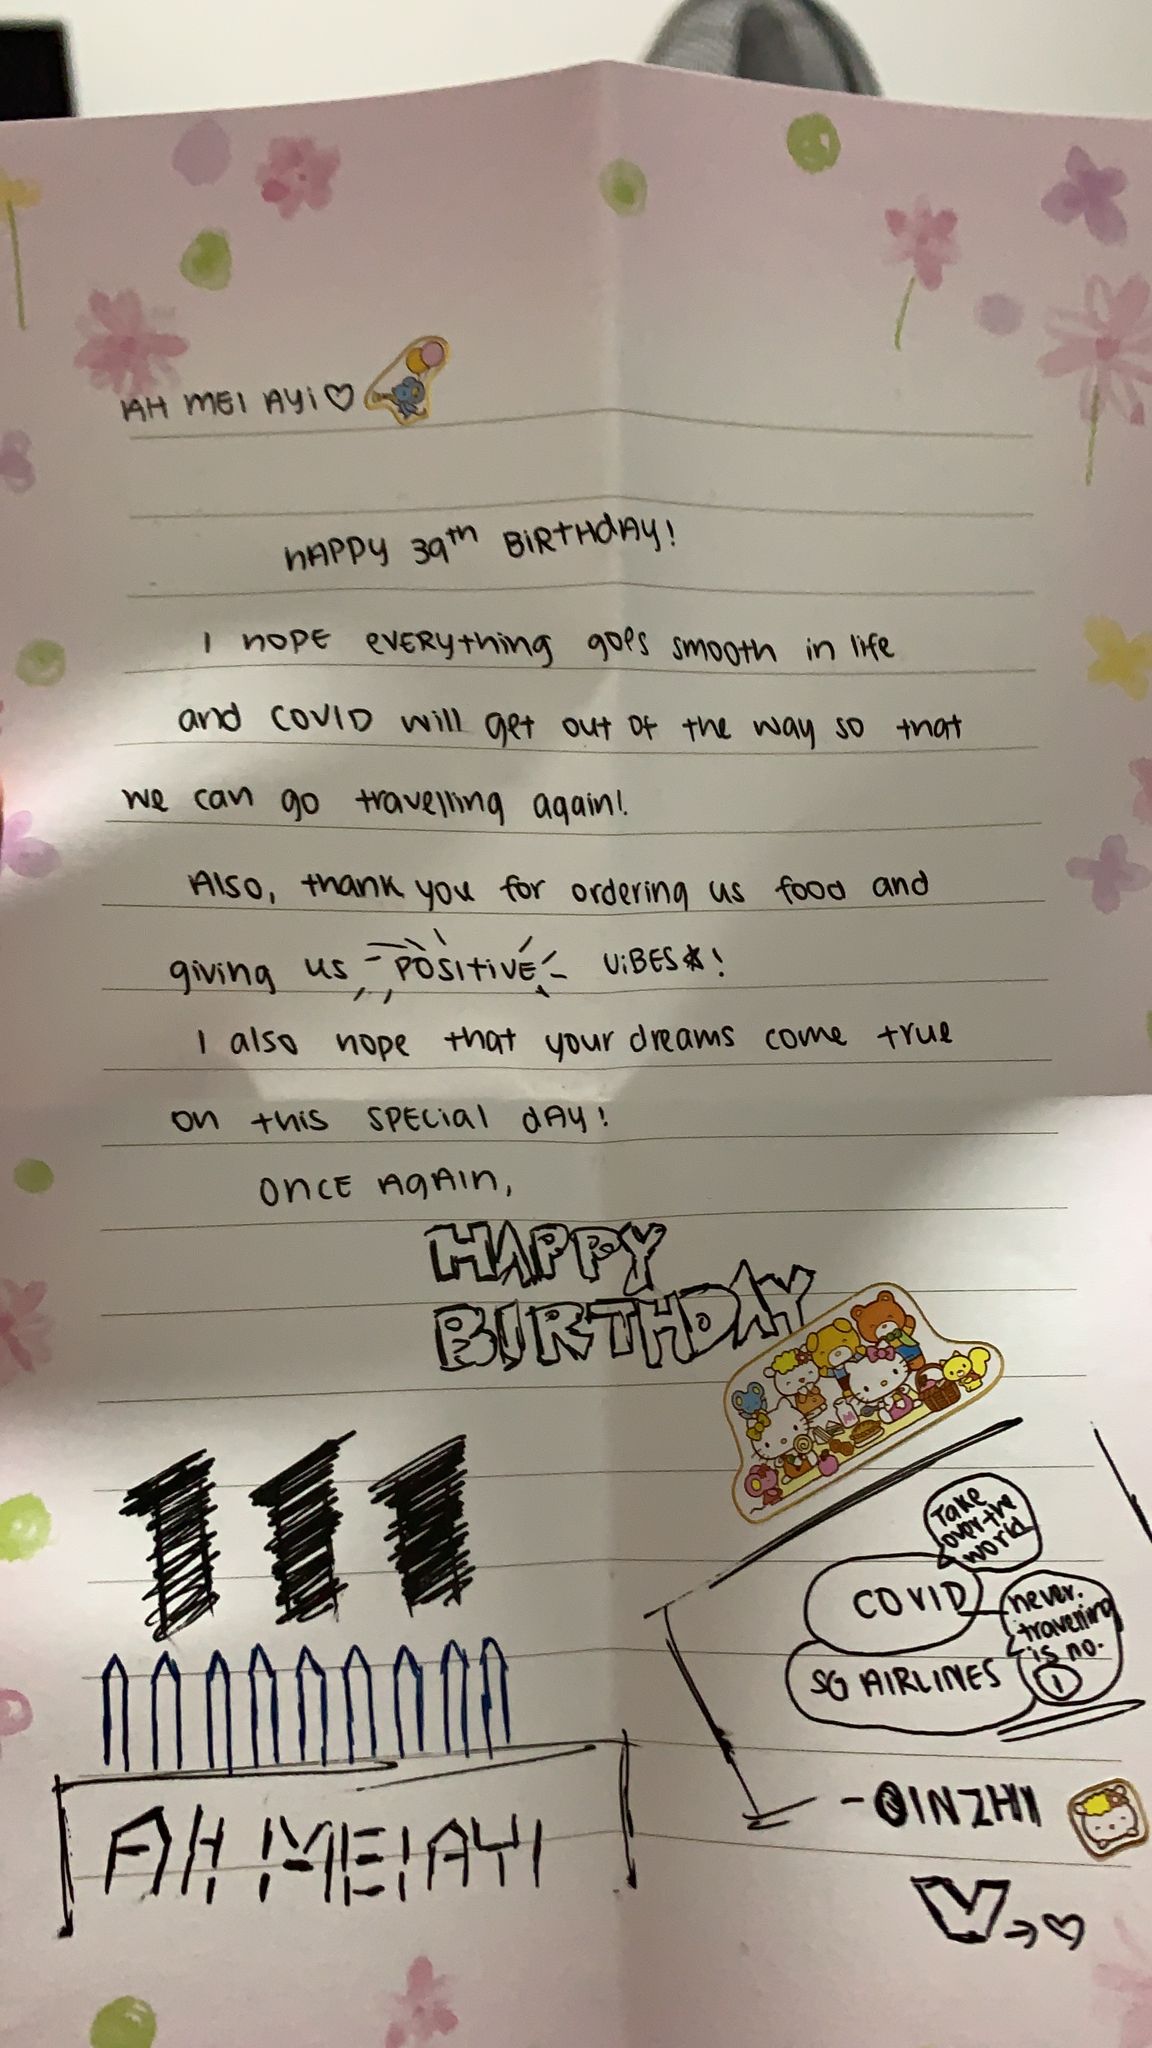 AH MEI AYi♡
hAPPY 39th BiRTHdAY!
I hOPE EVERYthing goes smooth in life
and COVID will get out of the way so that
we can go travelling again!
Also, thank you for ordering us food and
giving us POSitiVE ViBES☆!
I also hope that your dreams come true
on this SPECial dAY!
OnCE AgAIn,
HAPPY
BIRTHDAY
111
AH MEI AYI
Take
over the
world
COVID
never.
travelling
is no.
1
SG AIRLINES
-QINZHI
V→♡